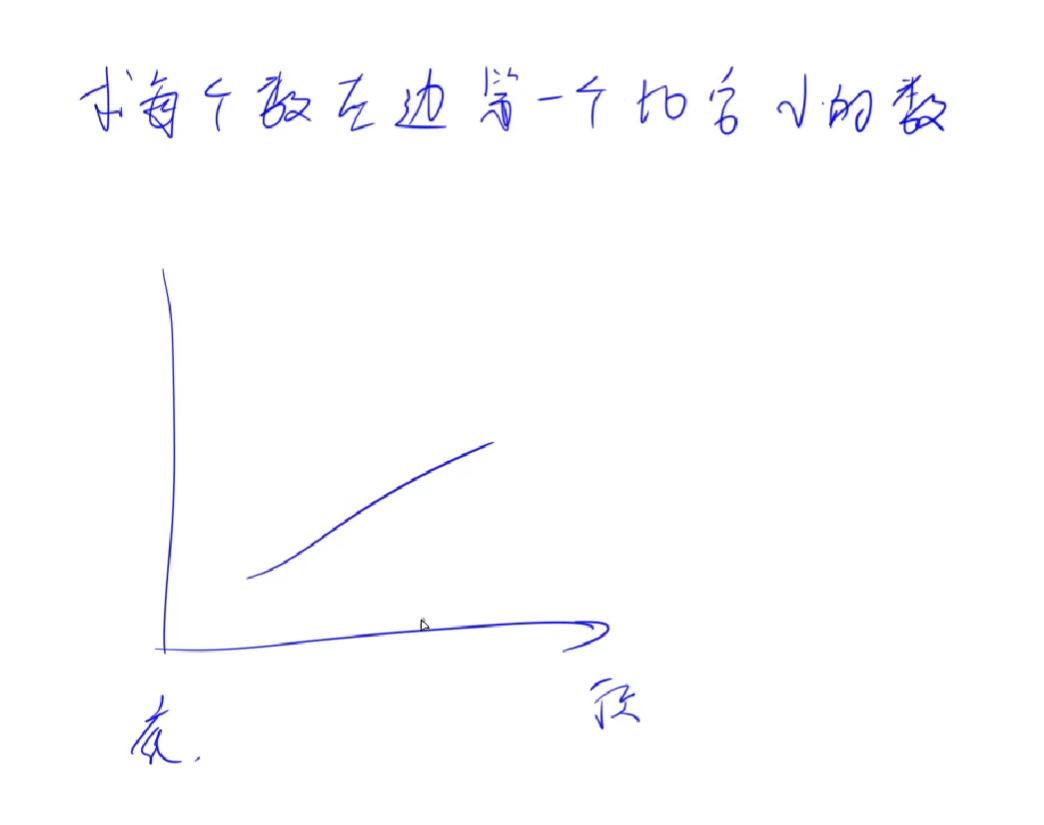 求每个数左边第一个比它小的数
底
顶